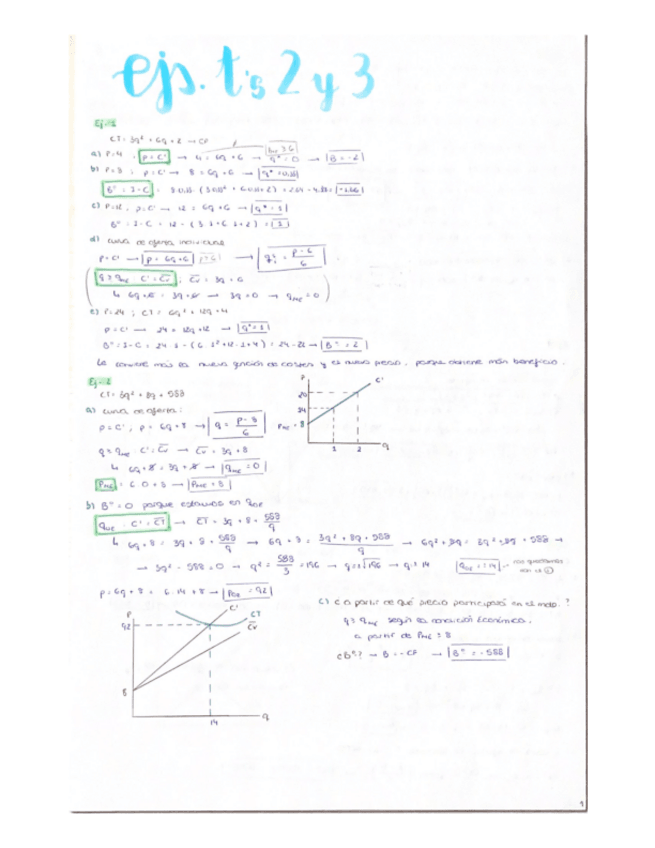 ejs. t's 2 y 3
Ej-1
CT = 3q² + 6q + 2 → CP
a) P=4 · P=C' → 4 = 6q + 6 → q* = 0 → B = -2
b) P=8 ; P=C' → 8 = 6q + 6 →
c) P=12, P=C' → 12 = 6q + 6 → q* = 1
Bº = I - C = 12 - (3·1 + 6·1 + 2) = 1
d) curva de oferta individual
P=C' → P = 6q + 6 → q = P-6 / 6
C' = C̅v ; C̅v = 3q + 6
↳ 6q + 6 = 3q + 6 → 3q = 0 → qMC = 0
e) P=24 ; CT = 6q² + 12q + 4
P=C' → 24 = 12q + 12 → q* = 1
Bº = I - C = 24·1 - (6·1² + 12·1 + 4) = 24 - 22 → Bº = 2
Le conviene más la nueva función de costes y el nuevo precio, porque obtiene más beneficio.
Ej-2
CT = 3q² + 8q + 588
a) curva de oferta:
P=C' ; P = 6q + 8 → q = P-8 / 6
q ≥ qMC · C' = C̅v → C̅v = 3q + 8
↳ 6q + 8 = 3q + 8 → qMC = 0
PMC = 6·0 + 8 → PMC = 8
P C' 20 14 PMC = 8 1 2 q
b) Bº = 0 porque estamos en qOE
qOE · C' = C̅T → C̅T = 3q + 8 + 588/q
↳ 6q + 8 = 3q + 8 + 588/q → 6q + 8 = 3q² + 8q + 588 / q → 6q² + 8q = 3q² + 8q + 588 →
→ 3q² - 588 = 0 → q² = 588/3 = 196 → q = ±√196 → q = ±14
P = 6q + 8 = 6·14 + 8 → POE = 92
P 92 8 C' CT C̅v 14 q
c) ¿a partir de qué precio participará en el mdo.?
q ≥ qMC según la condición económica.
a partir de PMC = 8
¿Bº? → B = -CF → Bº = -588
1